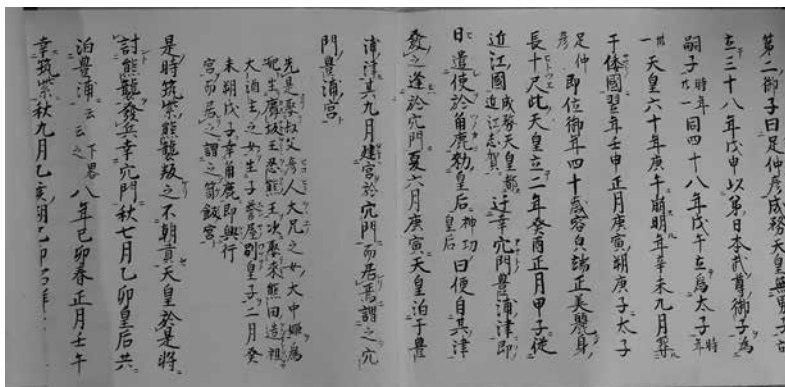 第二御子曰足仲彦成務天皇無男子故
立三十八年戊申以第日本武尊御子為
嗣子時年廿一同四十八年戊午立為太子時年
卅一天皇六十年庚午崩明年辛未九月葬
于倭國翌年壬申正月庚寅朔庚子太子
足仲彦即位御年四十歳容皃端正美麗身
長十尺此天皇立二年癸酉正月甲子従
近江國成務天皇都近江志賀迁幸穴門豊浦津即
日遣使於角鹿勅皇后神功皇后曰便自其津
發之逢於穴門夏六月庚寅天皇泊于豊
浦津其九月建宮於穴門而居焉謂之穴
門豊浦宮
先是娶叔父彦人大兄之女大中媛為
妃生麛坂王忍熊王次娶来熊田造祖
大酒主之女生子誉屋別皇子二月癸
未朔戊子幸角鹿即興行
宮而居之謂之笥飯宮
是時筑紫熊襲叛之不朝貢天皇於是将
討熊襲發兵幸穴門秋七月乙卯皇后共
泊豊浦云云下畧之八年己卯春正月壬午
幸筑紫秋九月乙亥朔己卯